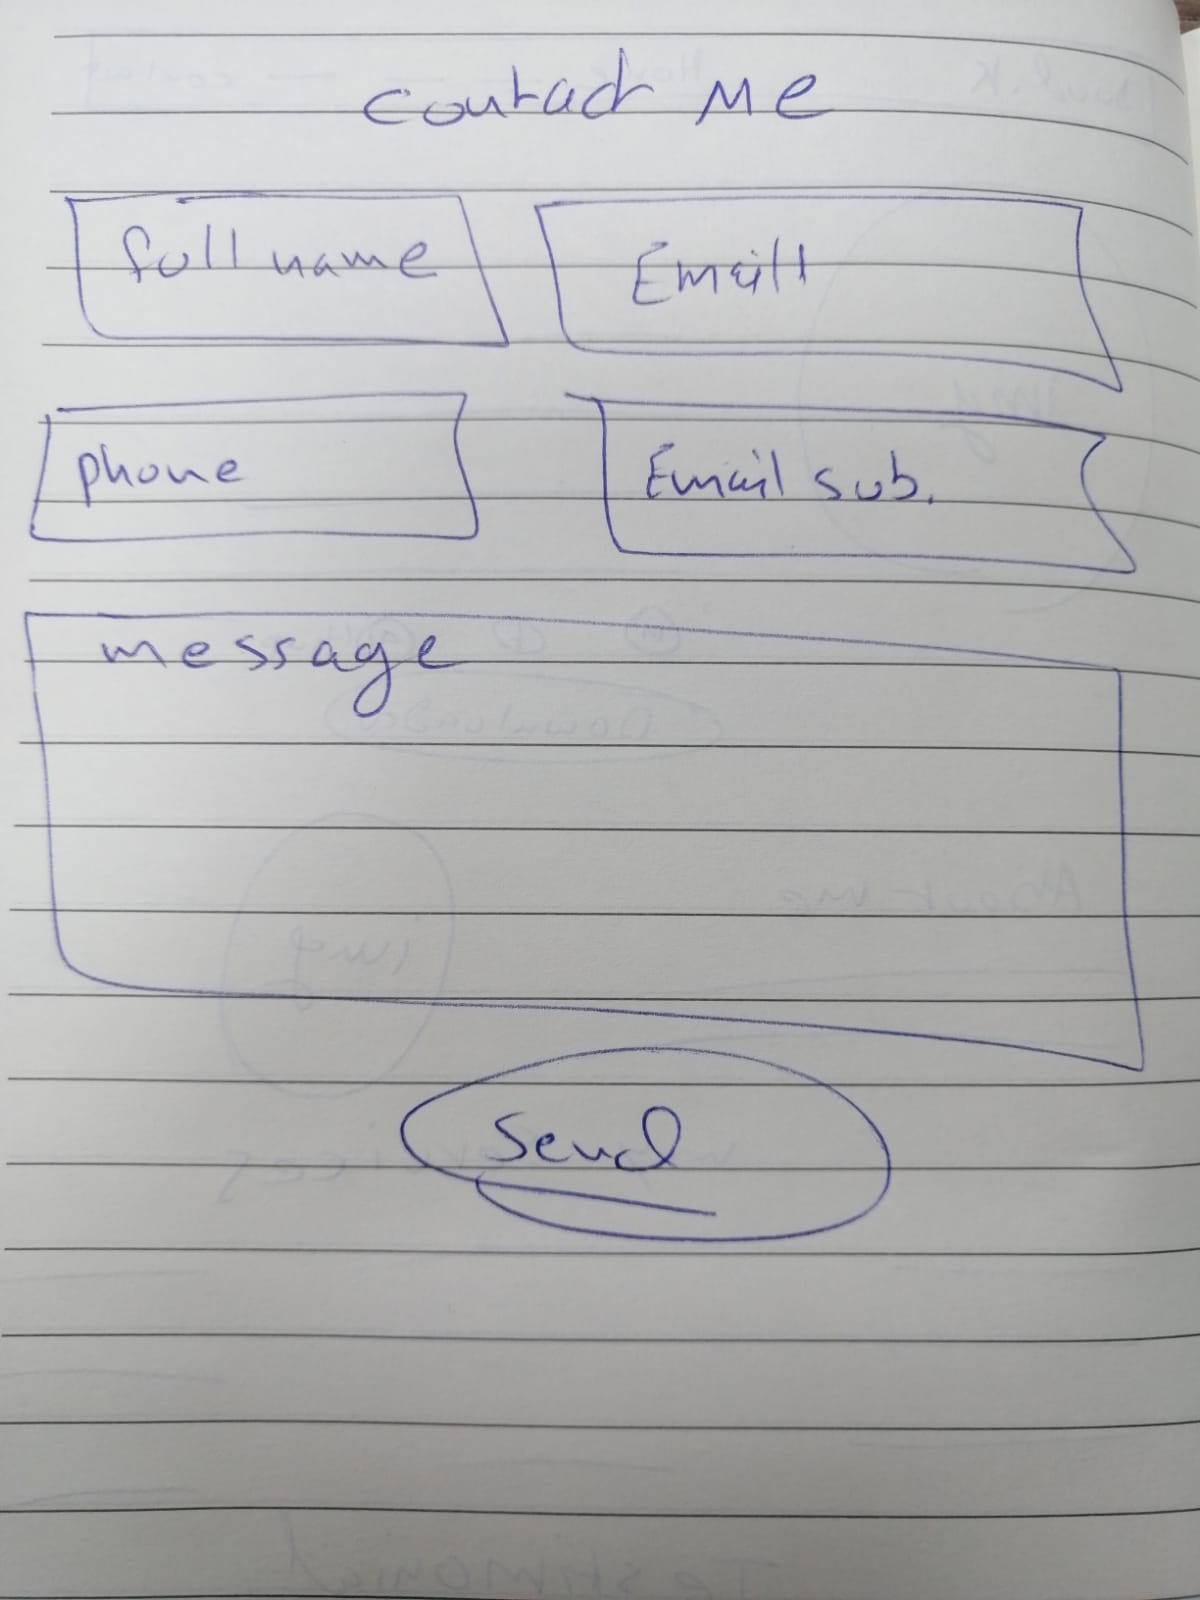 Contact Me
full name
Email
phone
Email sub.
message
Send